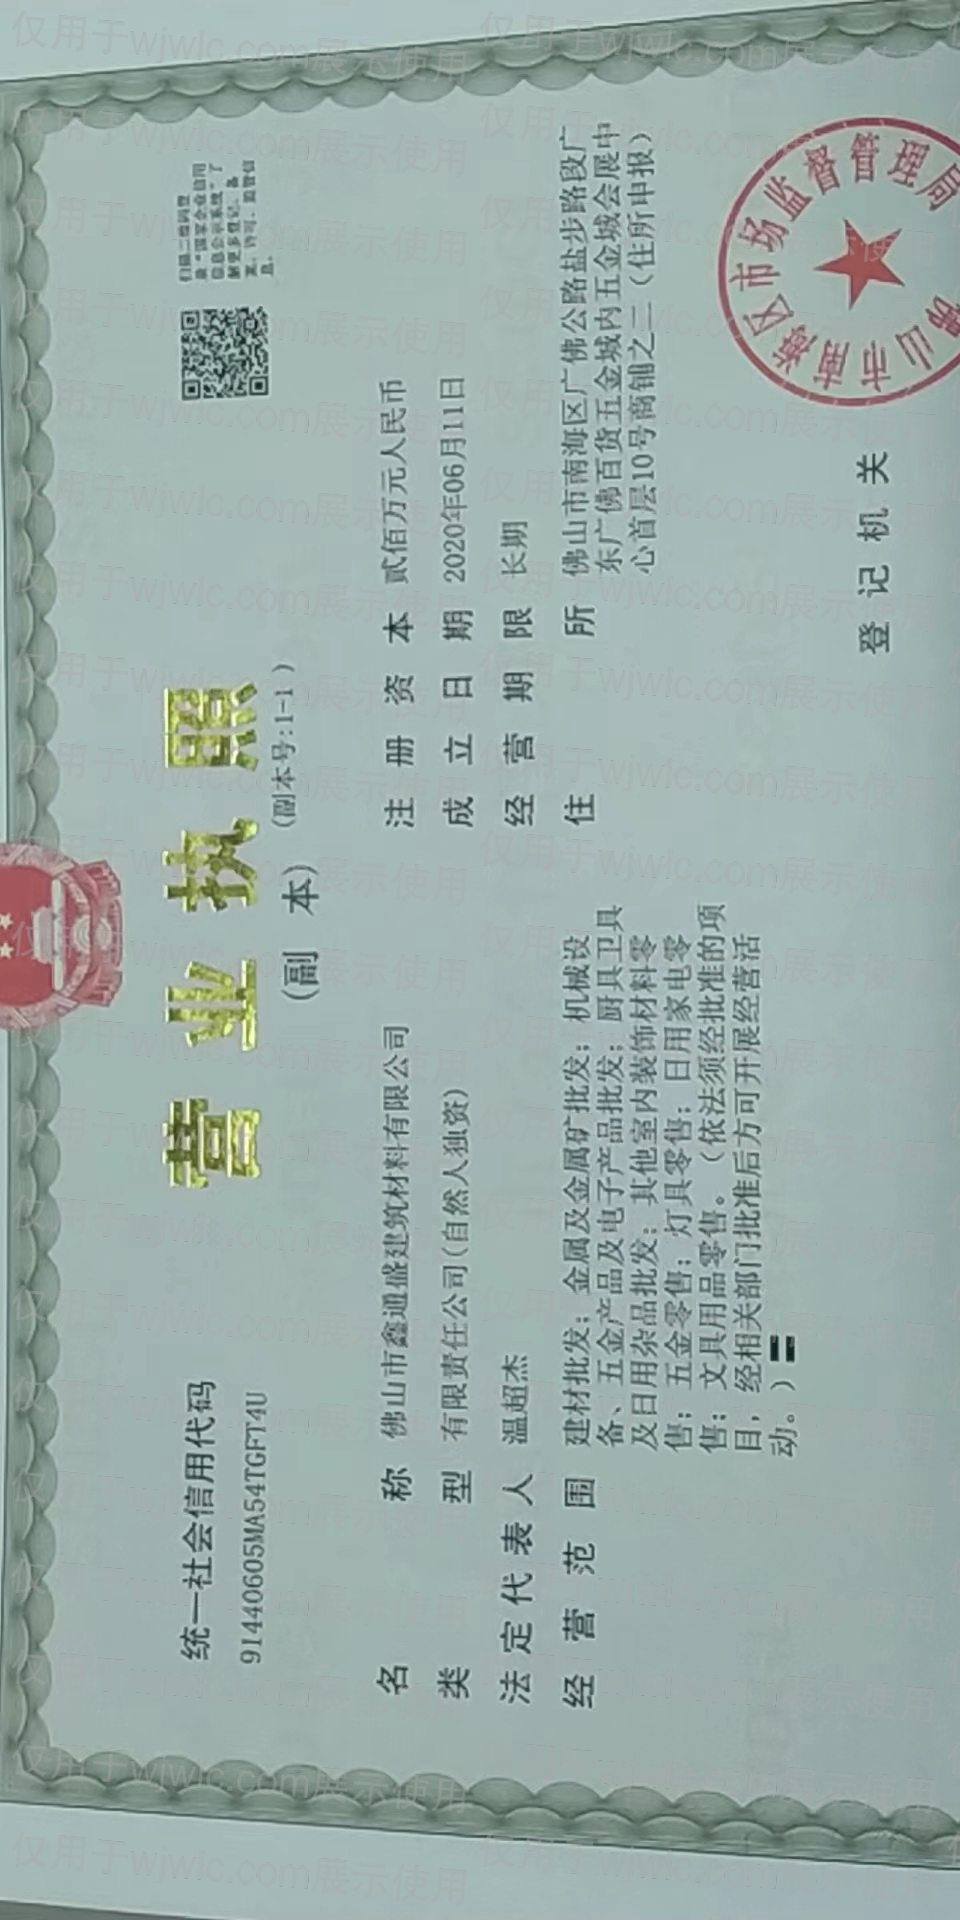 营业执照
(副 本)
(副本号:1-1 )
统一社会信用代码
91440605MA54TGFT4U
扫描二维码登
录“国家企业信用
信息公示系统”了
解更多登记、备
案、许可、监管信
息。
名 称 佛山市鑫通盛建筑材料有限公司
类 型 有限责任公司(自然人独资)
法定代表人 温超杰
经营范围 建材批发；金属及金属矿批发；机械设
备、五金产品及电子产品批发；厨具卫具
及日用杂品批发；其他室内装饰材料零
售；五金零售；灯具零售；日用家电零
售；文具用品零售。（依法须经批准的项
目，经相关部门批准后方可开展经营活
动。）
注册资本 贰佰万元人民币
成立日期 2020年06月11日
经营期限 长期
住 所 佛山市南海区广佛公路盐步路段广
东广佛百货五金城内五金城会展中
心首层10号商铺之二（住所申报）
登记机关
佛山市南海区市场监督管理局
仅用于wjwlc.com展示使用